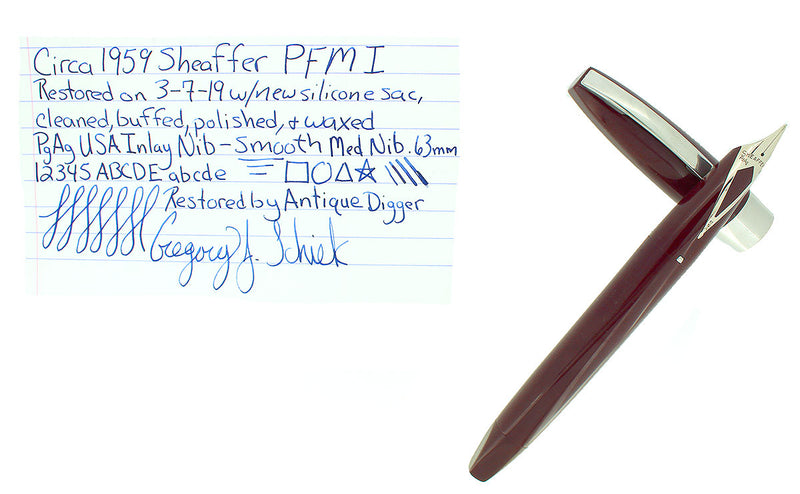 Circa 1959 Sheaffer PFM I
Restored on 3-7-19 w/new silicone sac,
cleaned, buffed, polished, & waxed
PgAg USA Inlay Nib - Smooth Med Nib .63mm
12345 ABCDE abcde
Restored by Antique Digger
Gregory J. Schiek
SHEAFFER'S